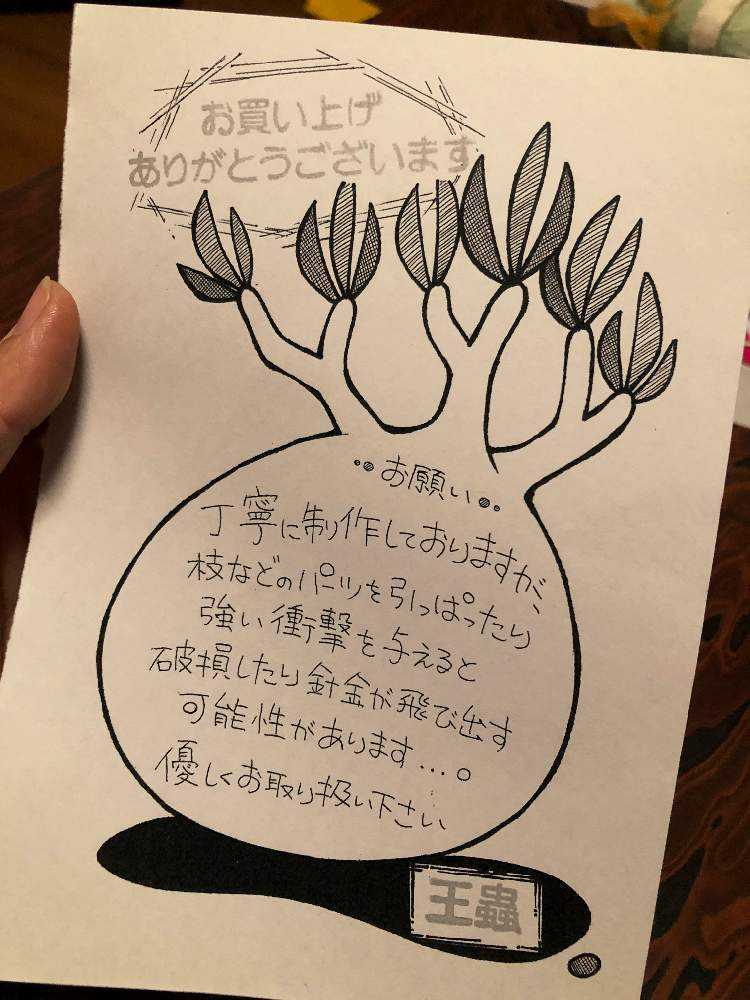 お買い上げ
ありがとうございます
お願い
丁寧に制作しておりますが、
枝などのパーツを引っぱったり
強い衝撃を与えると
破損したり針金が飛び出す
可能性があります...。
優しくお取り扱い下さい
王蟲